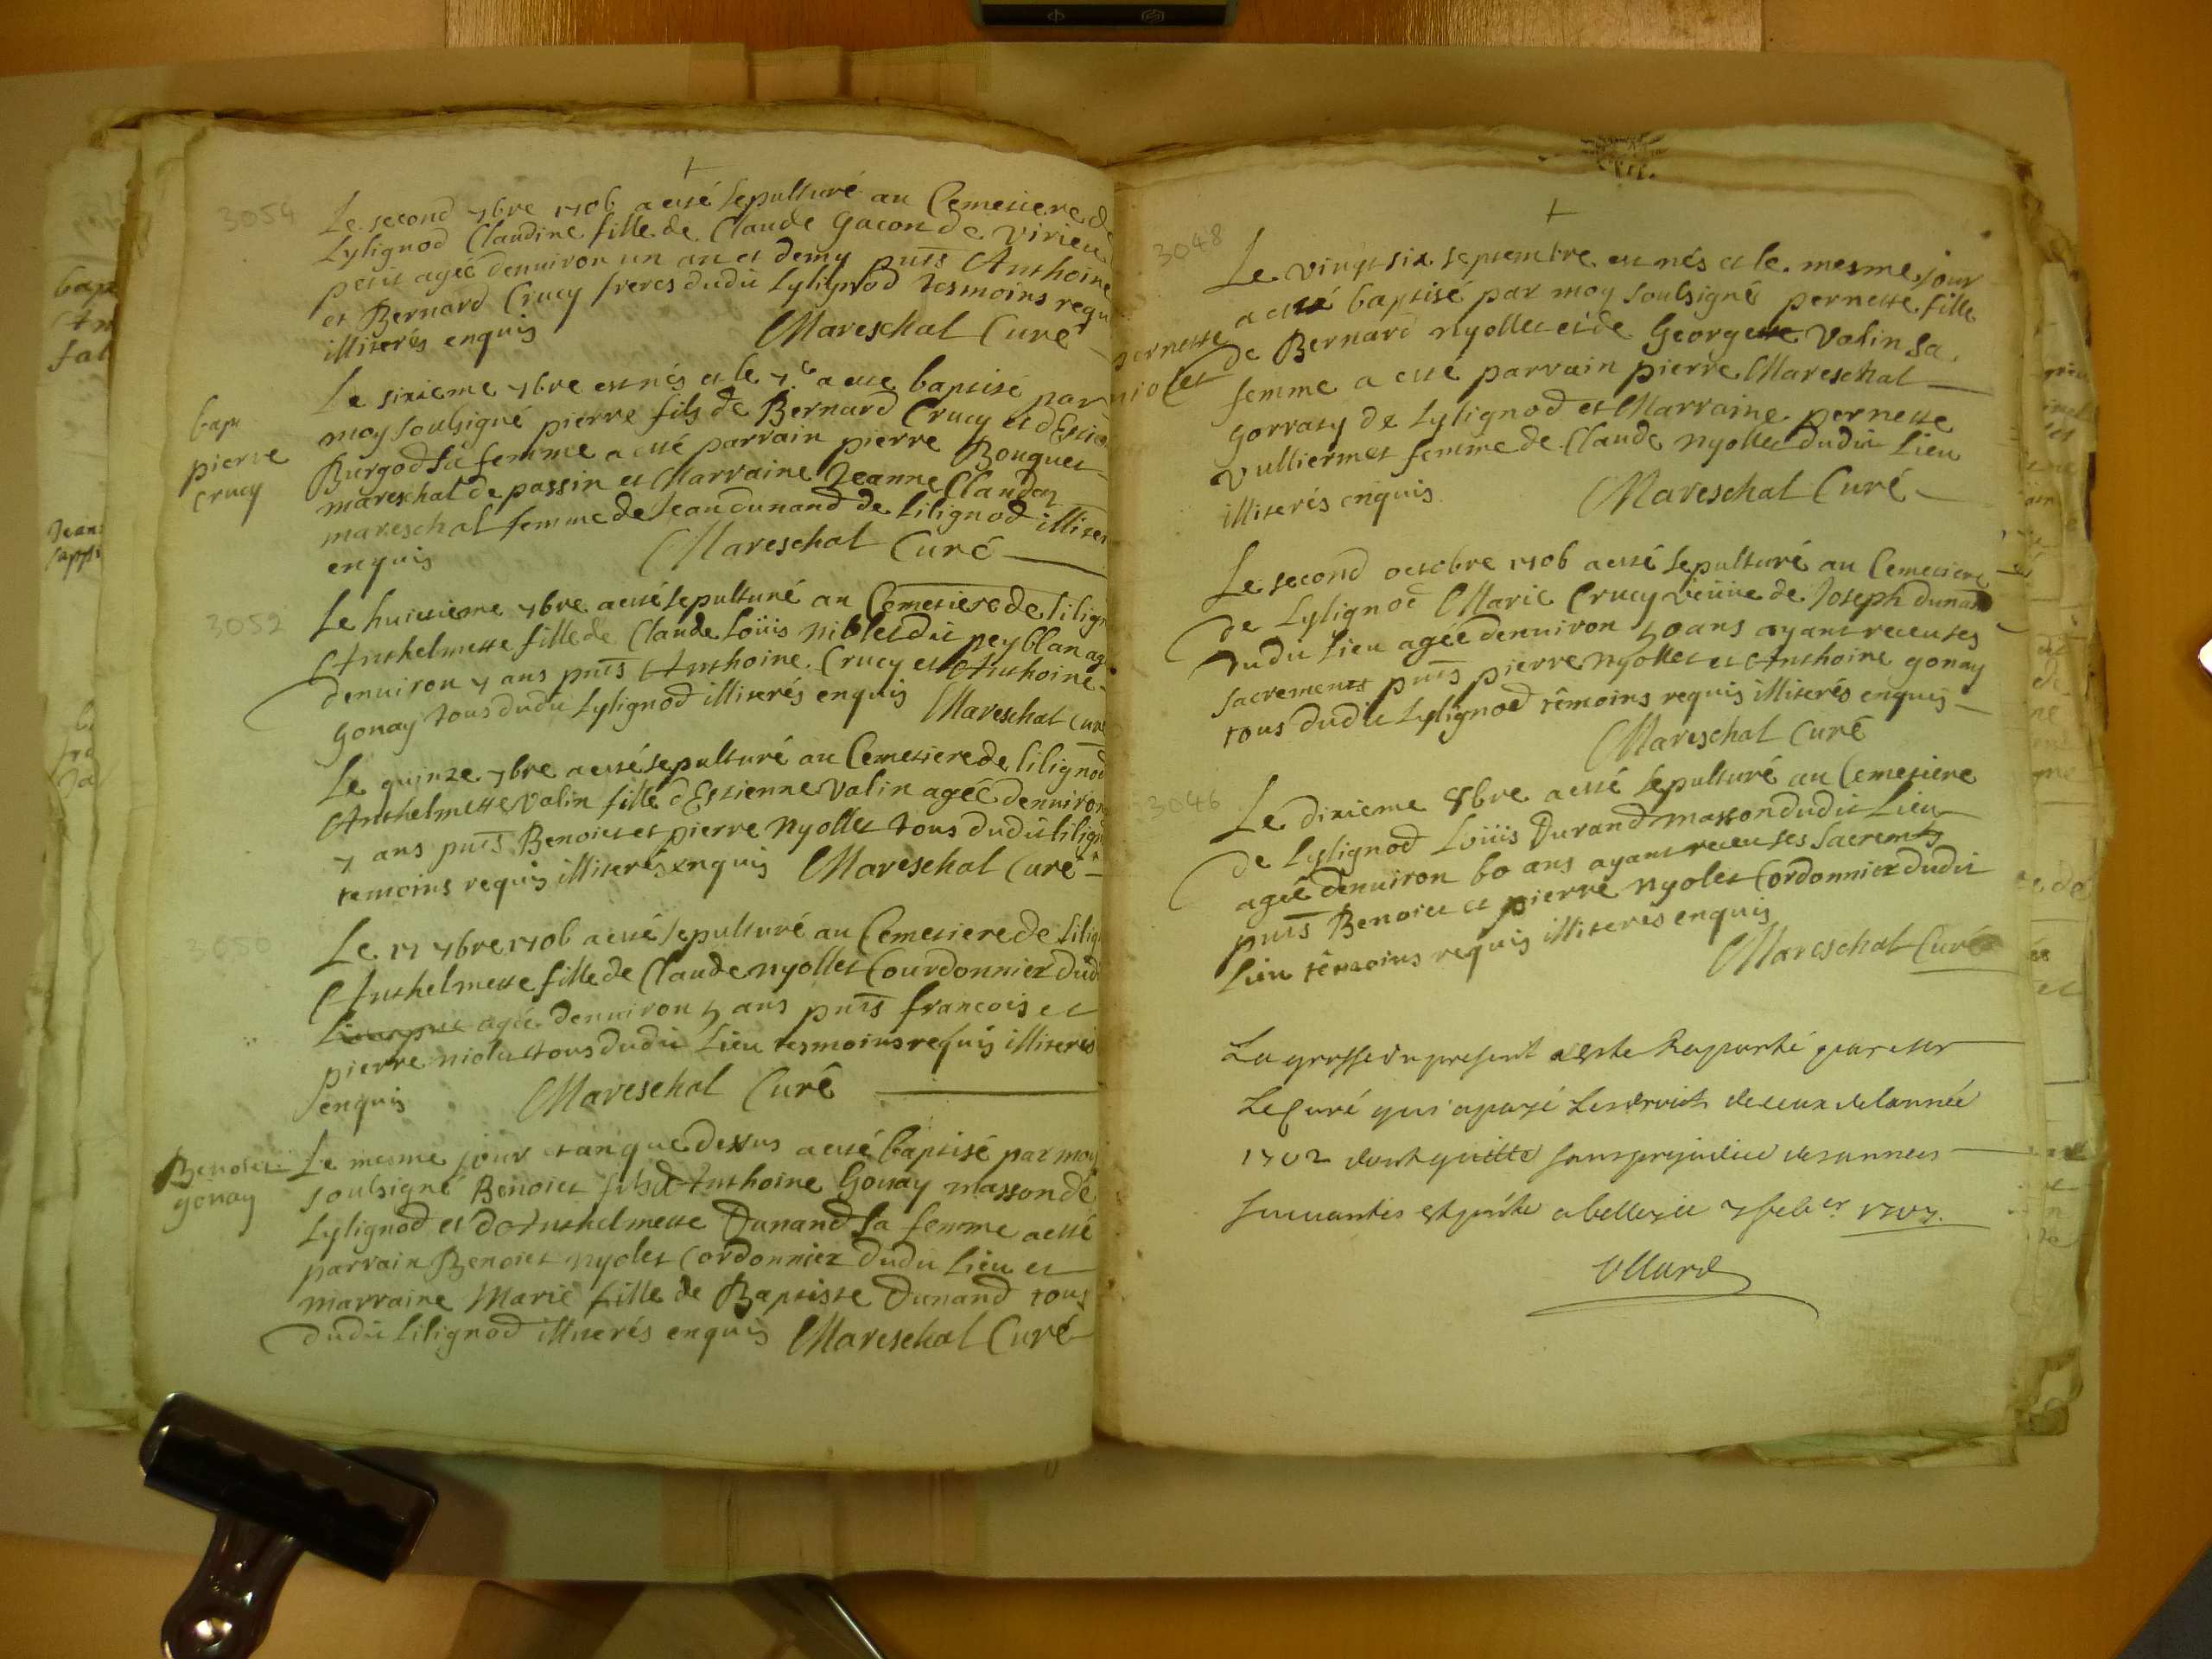 +
3054
Le second 7bre 1706 a esté sepulturé au Cemetiere de
Lylignod Claudine fille de Claude Gacon de Virieu
petit agée denuiron un an et demy pnts Anthoine
et Bernard Crucy freres dudit Lylignod tesmoins requ
illiterés enquis Mareschal Curé
bap
pierre
crucy
Le sixieme 7bre est nés et le 7.e a esté baptisé par
moy soubsigné pierre fils de Bernard Crucy et d'Estien
Burgod sa femme a esté parrain pierre Bouquet
mareschal de passin et Marraine Jeanne Claudaz
mareschal femme de Jean dunand de Lilignod illiter
enquis Mareschal Curé
3052
Le huitieme 7bre a esté sepulturé au Cemetiere de lilign
Anthelmette fille de Claude Loüis niblet dit pey blan ag
denuiron 7 ans pnts Anthoine Crucy et Anthoine
Gonay tous dudit Lylignod illiterés enquis Mareschal Curé
Le quinze 7bre a esté sepulturé au Cemetiere de lilignod
Anthelmette Valin fille d'Estienne Valin agée denuiron
7 ans pnts Benoict et pierre Nyollet tous dudit lilign
temoins requis illiterés enquis Mareschal Curé
3050
Le 17 7bre 1706 a esté sepulturé au Cemetiere de lilig
Anthelmette fille de Claude nyollet Courdonnier dud
agée denuiron 5 ans pnts francois et
pierre niolet tous dudit Lieu tesmoins requis illiterés
enquis Mareschal Curé
Benoict
gonay
Le mesme jour et an que dessus a esté baptisé par moy
soubsigné Benoict fils d'Anthoine Gonay masson de
Lylignod et d'Anthelmette Dunand sa femme a esté
parrain Benoict nyolet Cordonnier dudit Lieu et
marraine Marie fille de Baptiste Dunand tous
dudit Lilignod illiterés enquis Mareschal Curé
+
3048
pernette
niolet
Le vingt six septembre est nés et le mesme jour
a esté baptisé par moy soubsigné pernette fille
de Bernard nyollet et de Georgette Valin sa
femme a esté parrain pierre Mareschal
gorraty de Lylignod et Marraine pernette
Vulliermet femme de Claude nyollet dudit Lieu
illiterés enquis Mareschal Curé
Le second octobre 1706 a esté sepulturé au Cemetiere
de Lylignod Marie Crucy veüve de Joseph dunand
dudit Lieu agée denuiron 50 ans ayant receu ses
sacrements pnts pierre nyollet et Anthoine gonay
tous dudit Lylignod témoins requis illiterés enquis
Mareschal Curé
3046
Le dixieme 8bre a esté sepulturé au Cemetiere
de Lylignod Loüis Durand masson dudit Lieu
agée denuiron 60 ans ayant receu ses sacremts
pnts Benoict et pierre nyolet Cordonnier dudit
Lieu témoins requis illiterés enquis
Mareschal Curé
La grosse du present a este raporté par sr
Le Curé qui a payé Les droits de ceux de lannée
1702 dont quitte sans prejudice des annees
suiuantes et faite a belley ce 7 feb.er 1707.